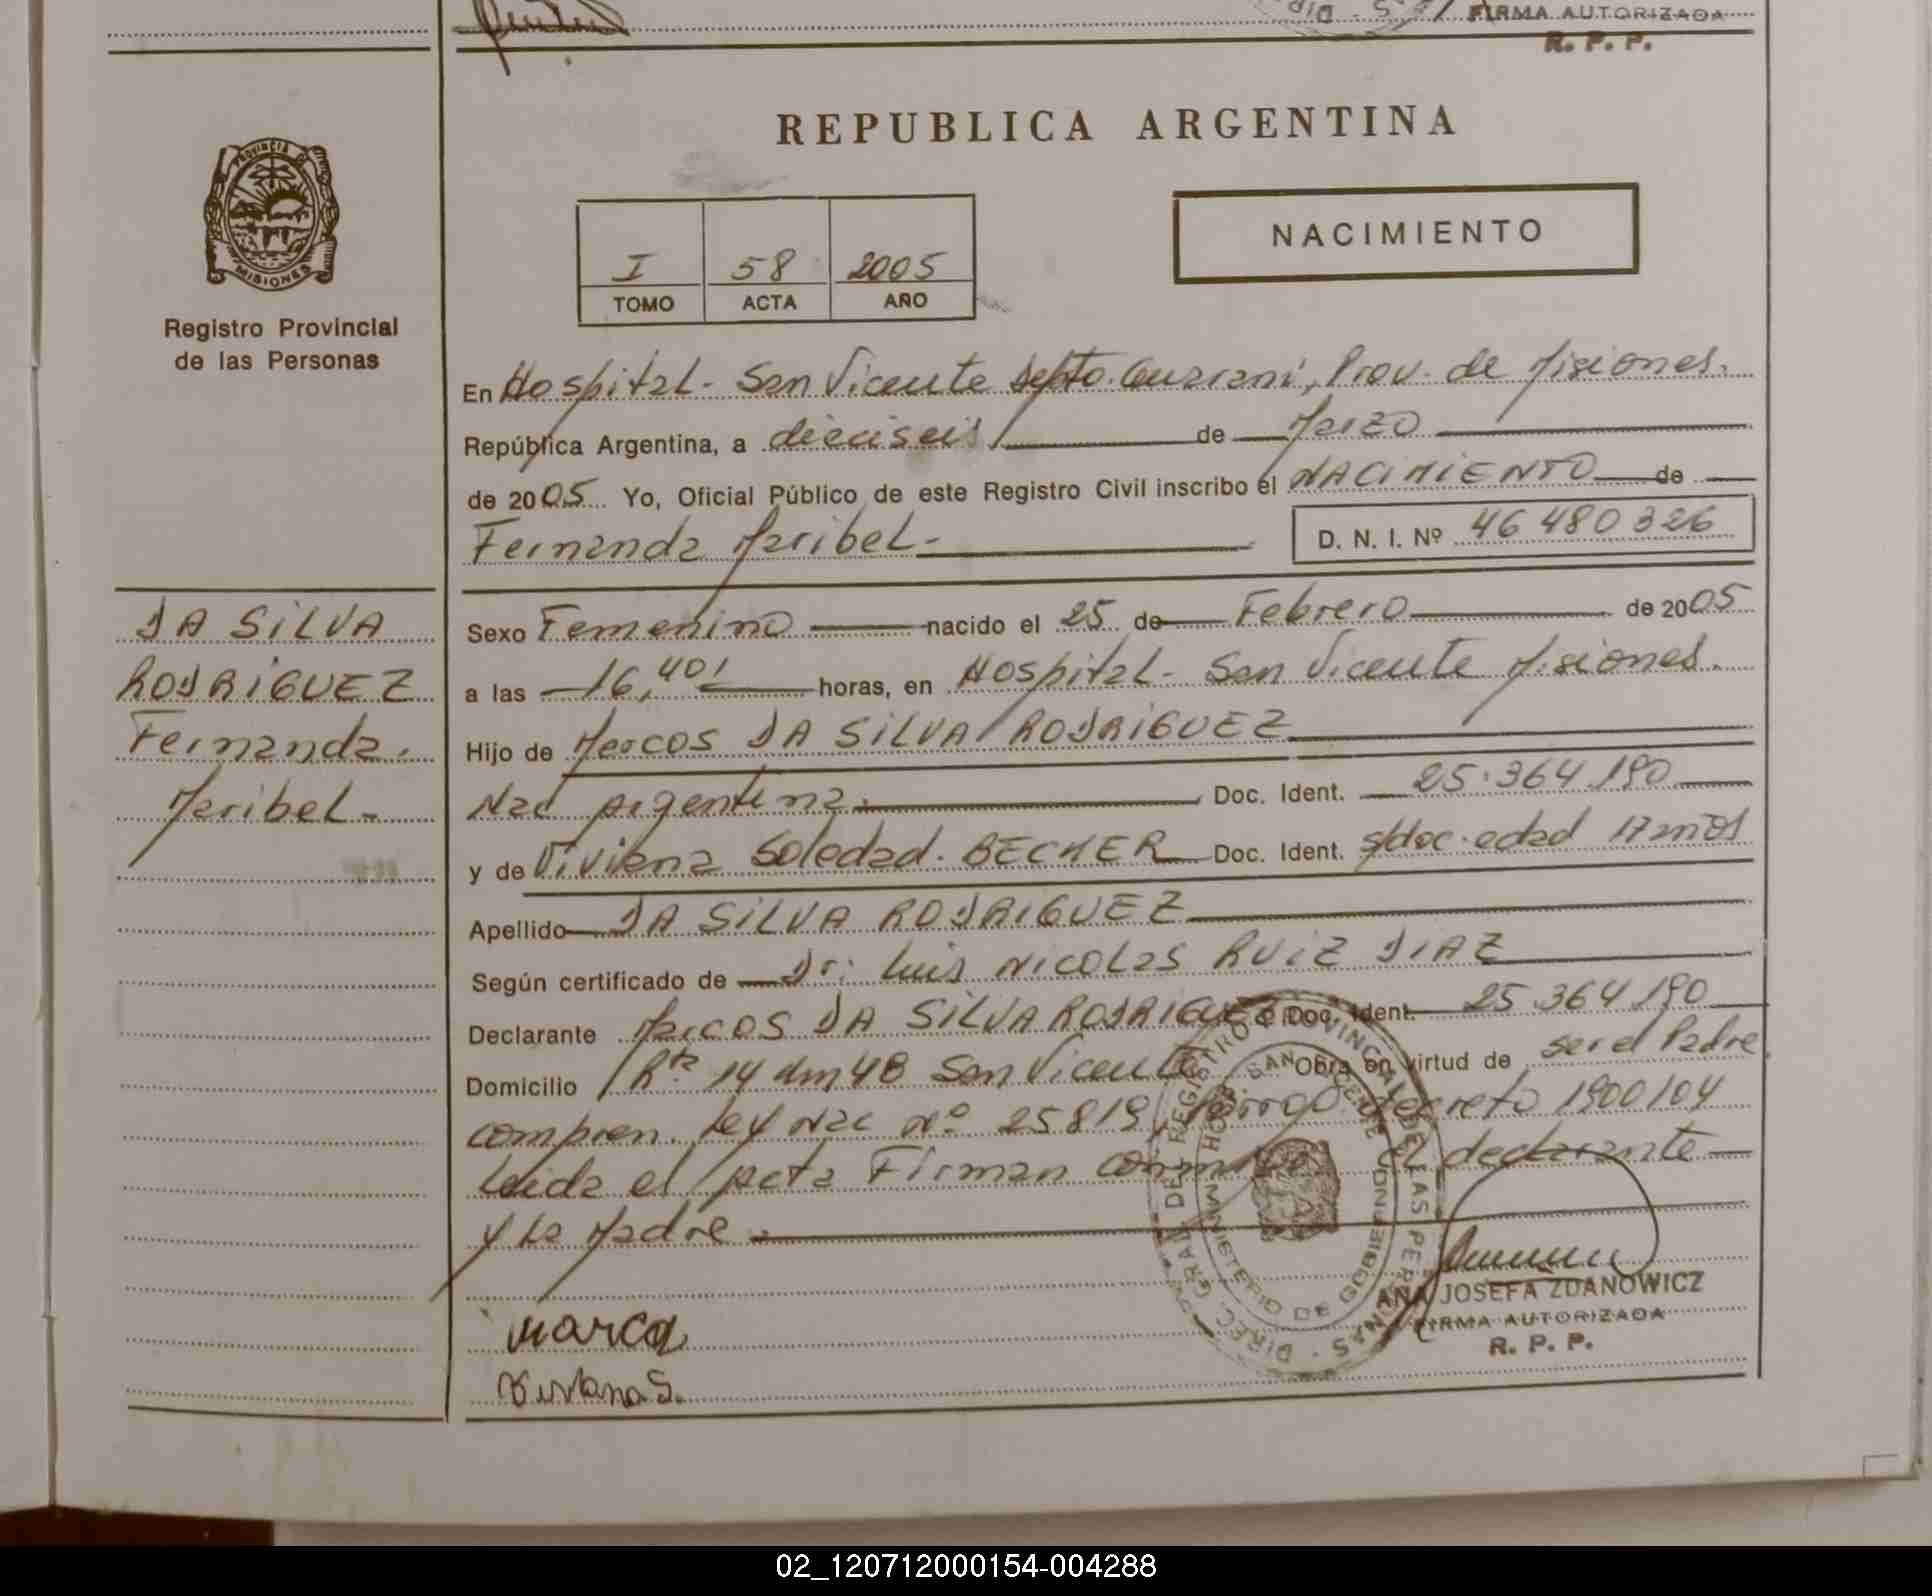 FIRMA AUTORIZADA
R. P. P.
REPUBLICA ARGENTINA
PROVINCIA DE
MISIONES
Registro Provincial
de las Personas
I 58 2005
TOMO ACTA AÑO
NACIMIENTO
En Hospital - San Vicente Depto. Guarani, Prov. de Misiones.
República Argentina, a dieciseis de Marzo
de 2005 Yo, Oficial Público de este Registro Civil inscribo el NACIMIENTO de
Fernanda Maribel -
D. N. I. Nº 46 480 326
DA SILVA
RODRIGUEZ
Fernanda
Maribel -
Sexo Femenino nacido el 25 de Febrero de 2005
a las 16,40' horas, en Hospital - San Vicente Misiones.
Hijo de Marcos DA SILVA RODRIGUEZ
Nac Argentina. Doc. Ident. 25.364.190
y de Viviana Soledad. BECHER Doc. Ident. s/doc. edad 17 años
Apellido DA SILVA RODRIGUEZ
Según certificado de Dr: Luis Nicolas RUIZ DIAZ
Declarante Marcos DA SILVA RODRIGUEZ Doc. Ident. 25.364.190
Domicilio Rta. 14 km 48 San Vicente Obra en virtud de ser el Padre
compren. Ley Nac Nº 25819 decreto 1900/04
Leida el Acta Firman conmigo el declarante
y la Madre.
DIREC. GRAL. DEL REGISTRO PROVINCIAL DE LAS PERSONAS
MINISTERIO DE GOBIERNO
SAN VICENTE
Marcos
Viviana S.
ANA JOSEFA ZDANOWICZ
FIRMA AUTORIZADA
R. P. P.
02_120712000154-004288